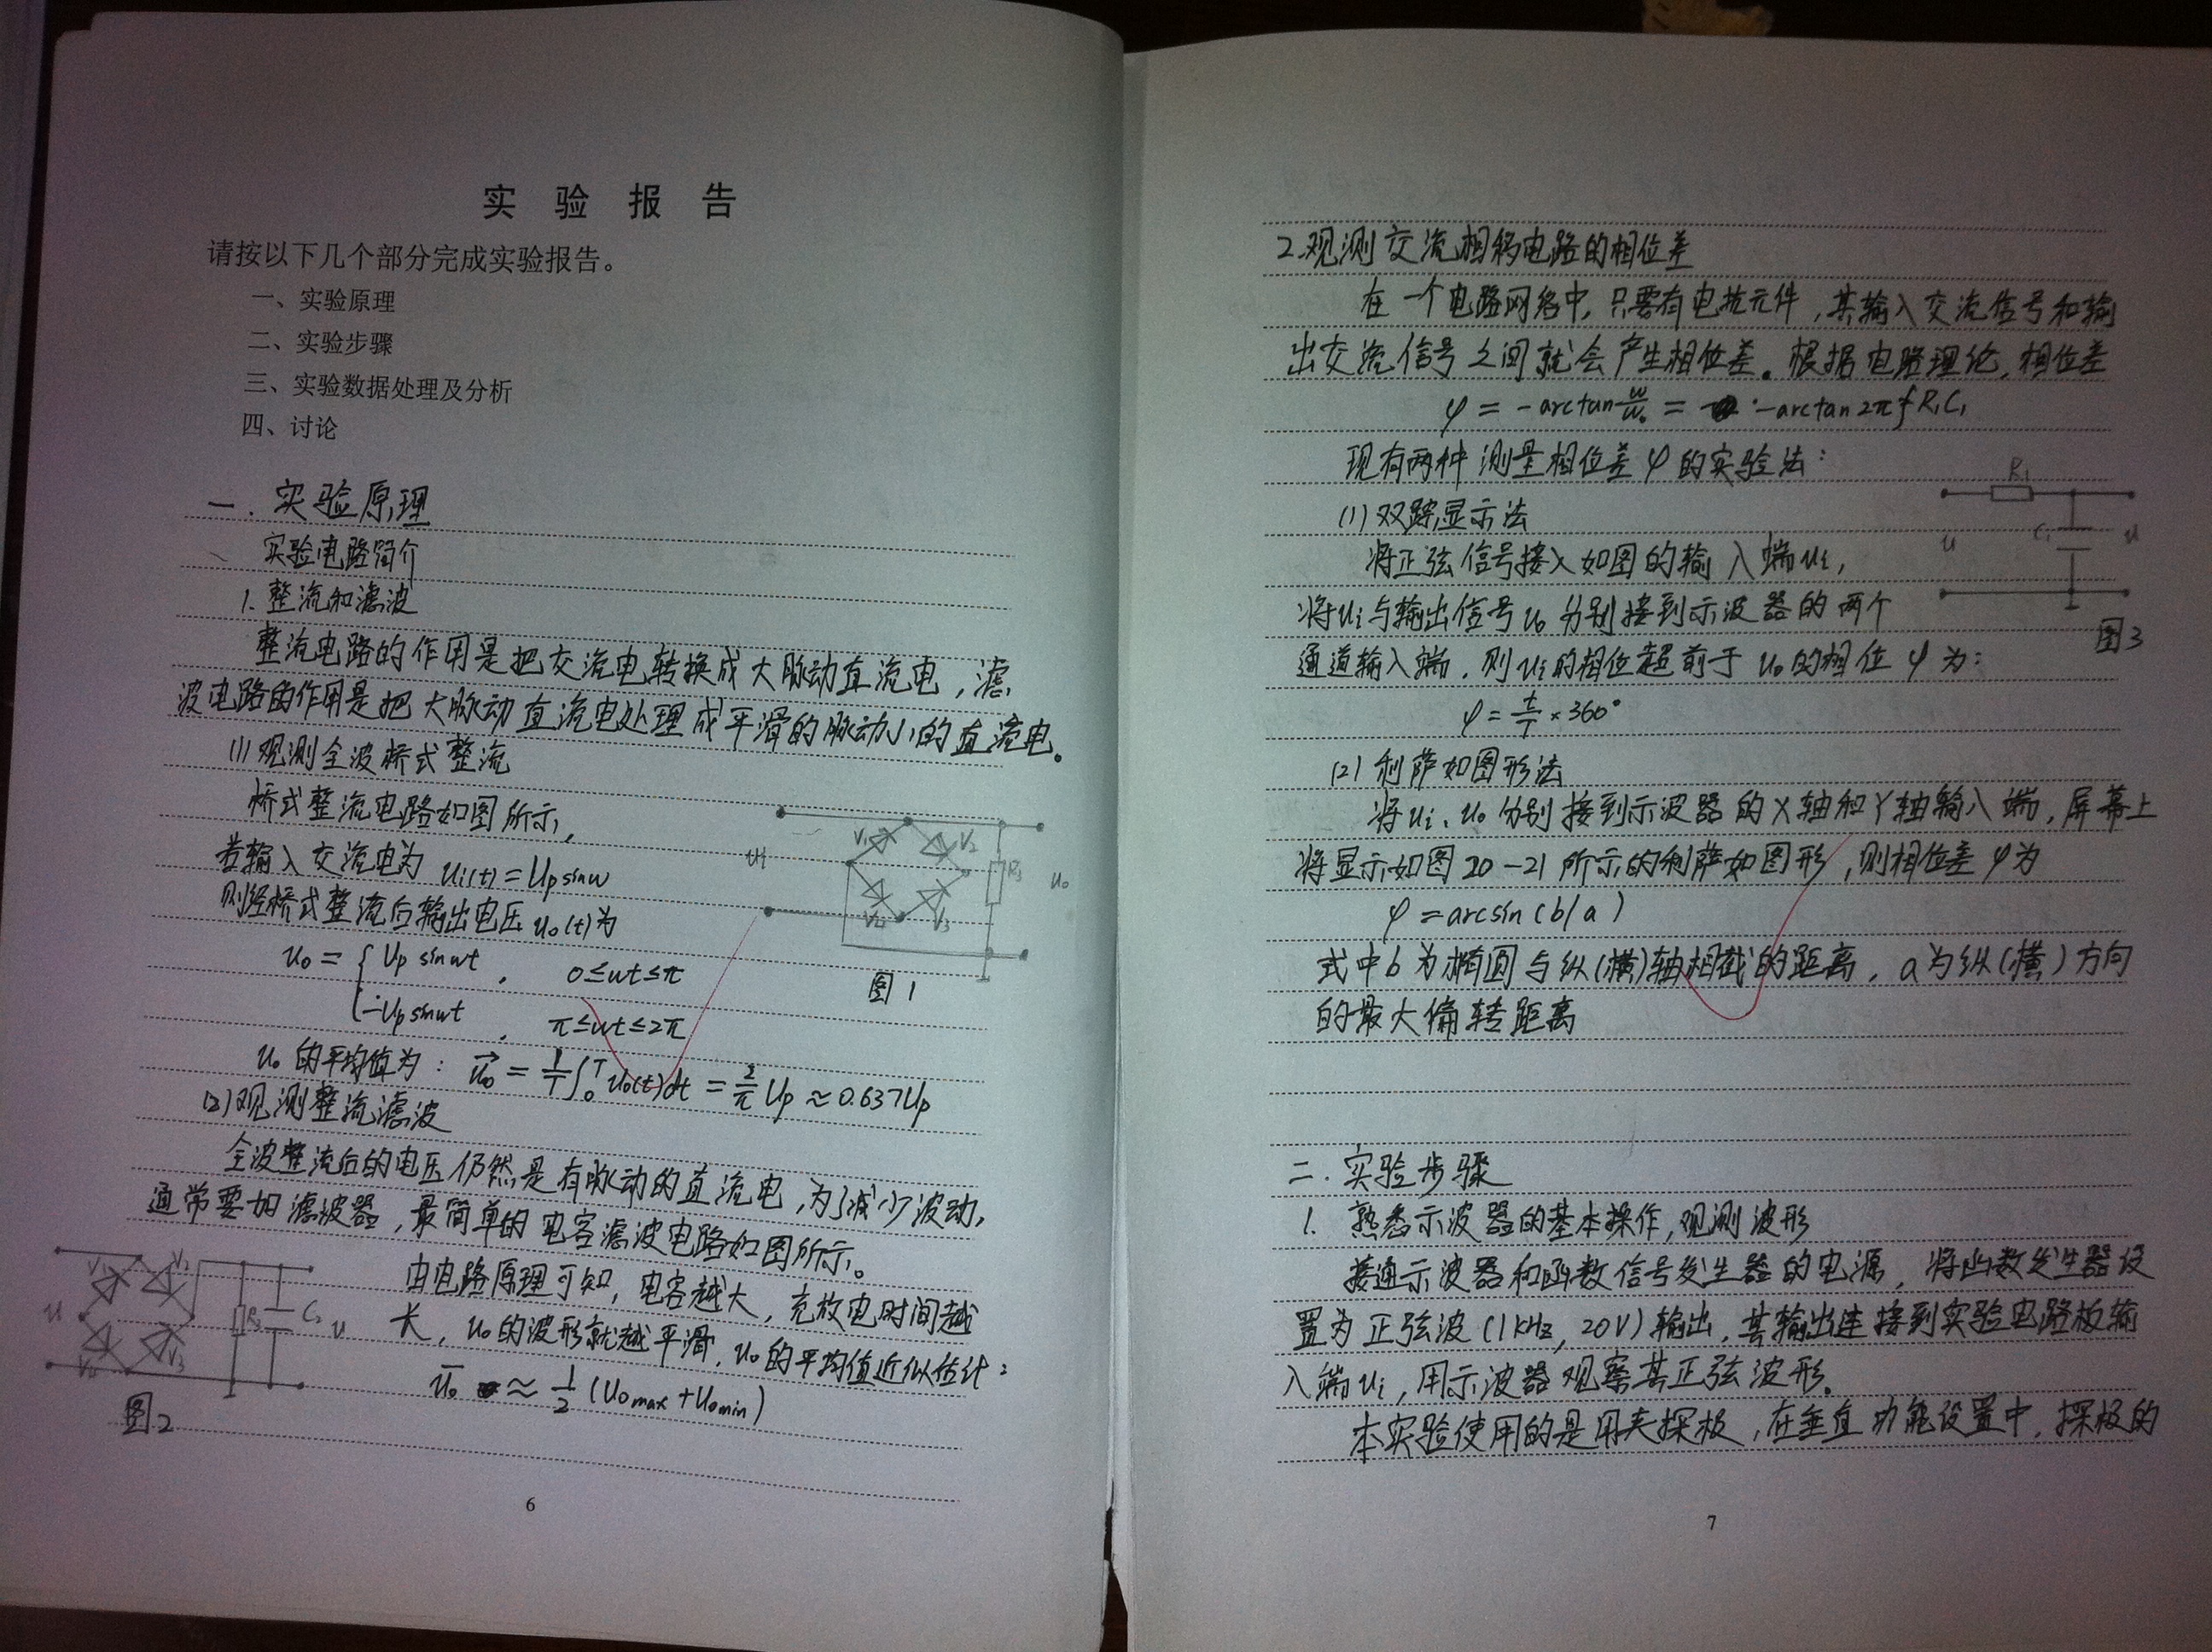 实验报告
请按以下几个部分完成实验报告。
一、实验原理
二、实验步骤
三、实验数据处理及分析
四、讨论
一.实验原理
实验电路简介
1.整流和滤波
整流电路的作用是把交流电转换成大脉动直流电,滤
波电路的作用是把大脉动直流电处理成平滑的脉动小的直流电。
(1)观测全波桥式整流
桥式整流电路如图所示,
若输入交流电为 ui(t)=Up sinω
则经桥式整流后输出电压 uo(t)为
uo = { Up sinωt , 0≤ωt≤π
-Up sinωt , π≤ωt≤2π
ui
V1
V2
V3
R3
uo
图1
uo的平均值为: uo = 1/T ∫0T uo(t)dt = 2/π Up ≈ 0.637Up
(2)观测整流滤波
全波整流后的电压仍然是有脉动的直流电,为了减少波动,
通常要加滤波器,最简单的电容滤波电路如图所示。
由电路原理可知,电容越大,充放电时间越
长,uo的波形就越平滑.uo的平均值近似估计:
uo ≈ 1/2 (uomax + uomin)
u
R3
C1
u
图2
6
2.观测交流相移电路的相位差
在一个电路网络中,只要有电抗元件,其输入交流信号和输
出交流信号之间就会产生相位差。根据电路理论,相位差
φ = -arctan ω/ω0 = -arctan 2πfR1C1
现有两种测量相位差φ的实验法:
(1)双踪显示法
将正弦信号接入如图的输入端ui,
将ui与输出信号uo分别接到示波器的两个
通道输入端.则ui的相位超前于uo的相位φ为:
φ = t/T ×360°
u
R1
C1
u
图3
(2)利萨如图形法
将ui、uo分别接到示波器的X轴和Y轴输入端,屏幕上
将显示如图20-21所示的利萨如图形,则相位差φ为
φ = arcsin(b/a)
式中b为椭圆与纵(横)轴相截的距离,a为纵(横)方向
的最大偏转距离
二.实验步骤
1.熟悉示波器的基本操作,观测波形
接通示波器和函数信号发生器的电源,将函数发生器设
置为正弦波(1kHz,20V)输出.其输出连接到实验电路板输
入端ui,用示波器观察其正弦波形.
本实验使用的是用夹探极,在垂直功能设置中,探极的
7